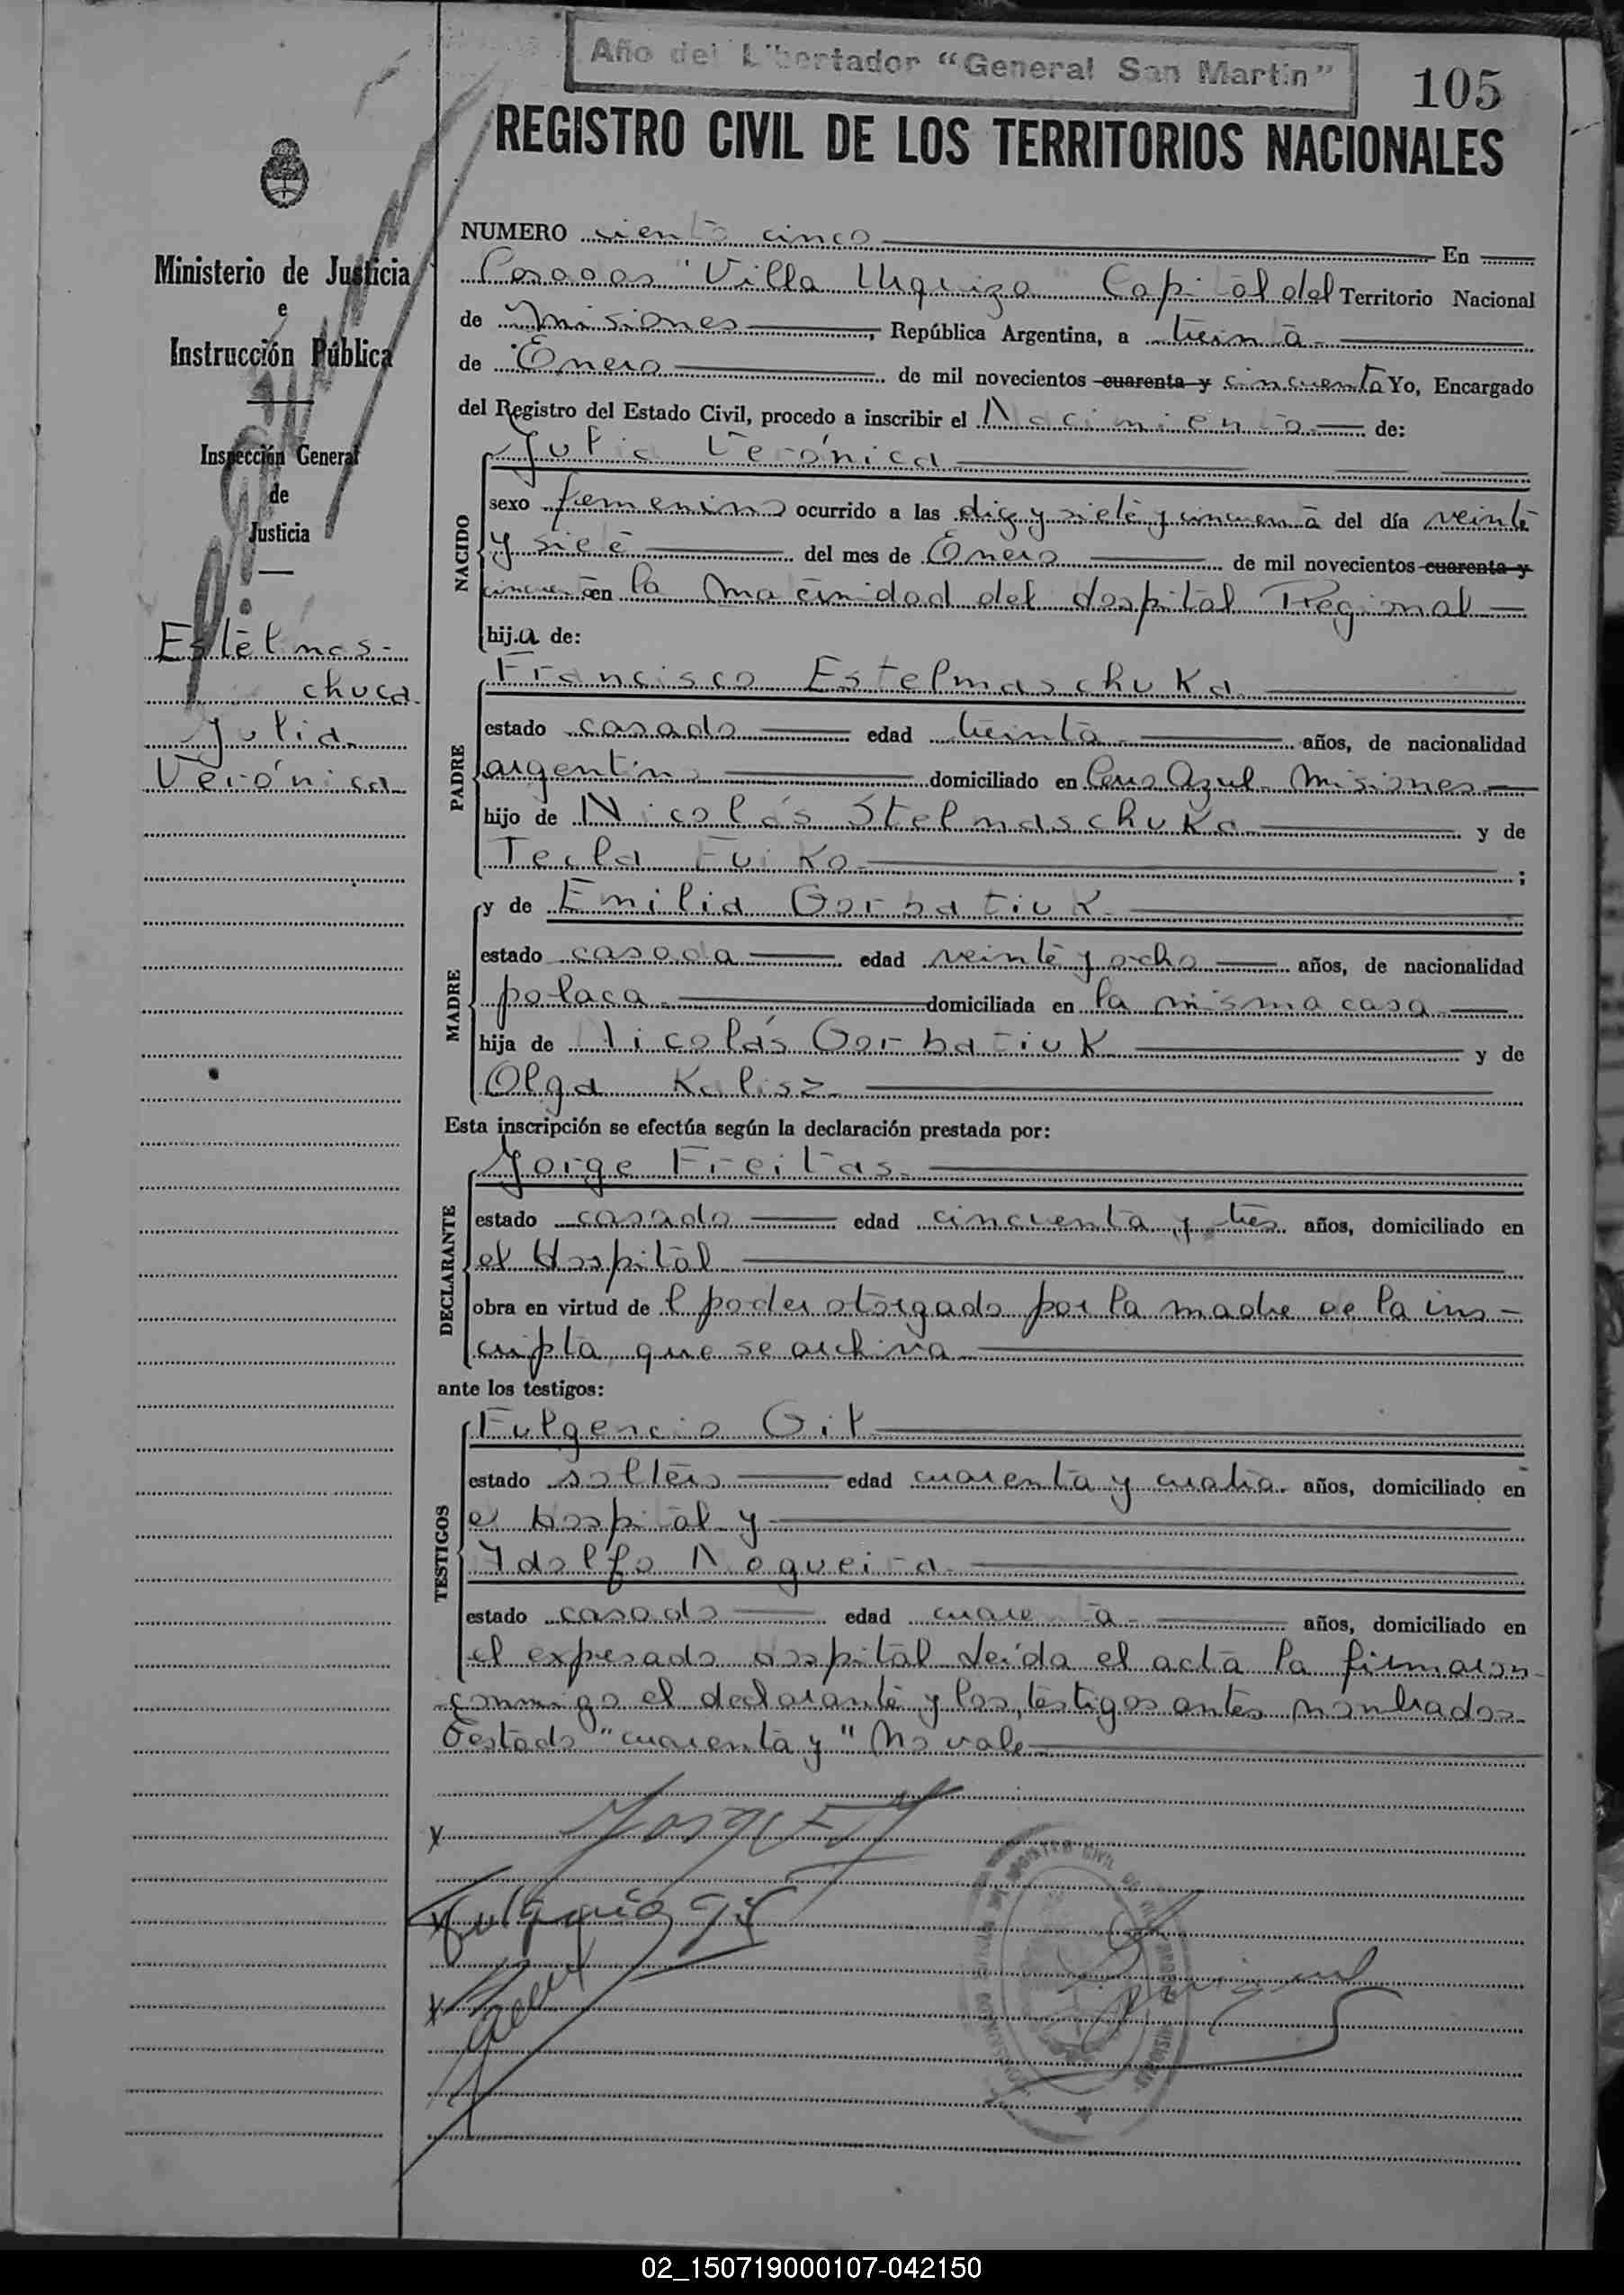 Año del Libertador "General San Martin"
105
REGISTRO CIVIL DE LOS TERRITORIOS NACIONALES
Ministerio de Justicia
e
Instrucción Pública
Inspección General
de
Justicia
Estelmas-
chuca
Julia
Verónica
NUMERO ciento cinco En
Posadas "Villa Urquiza" Capital del Territorio Nacional
de Misiones, República Argentina, a treinta
de Enero de mil novecientos cuarenta y cincuenta Yo, Encargado
del Registro del Estado Civil, procedo a inscribir el Nacimiento de:
NACIDO
Julia Verónica
sexo femenino ocurrido a las diez y siete y cincuenta del día veinte
y siete del mes de Enero de mil novecientos cuarenta y
cincuenta en la Maternidad del Hospital Regional
hij.a de:
PADRE
Francisco Estelmaschuka
estado casado edad treinta años, de nacionalidad
argentino domiciliado en Cerro Azul Misiones
hijo de Nicolás Stelmaschuka y de
Tecla Fuiko ;
MADRE
y de Emilia Gorbatiuk
estado casada edad veinte y ocho años, de nacionalidad
polaca domiciliada en la misma casa
hija de Nicolás Gorbatiuk y de
Olga Kalisz
Esta inscripción se efectúa según la declaración prestada por:
DECLARANTE
Jorge Freitas
estado casado edad cincuenta y tres años, domiciliado en
el Hospital
obra en virtud de l poder otorgado por la madre de la ins-
cripta que se archiva
ante los testigos:
TESTIGOS
Fulgencio Gil
estado soltero edad cuarenta y cuatro años, domiciliado en
el Hospital y
Adolfo Nogueira
estado casado edad cuarenta años, domiciliado en
el expresado Hospital Leída el acta la firmaron
conmigo el declarante y los testigos antes nombrados
Testado "cuarenta y" No vale
x Jorge F
x Fulgencio Gil
x
02_150719000107-042150